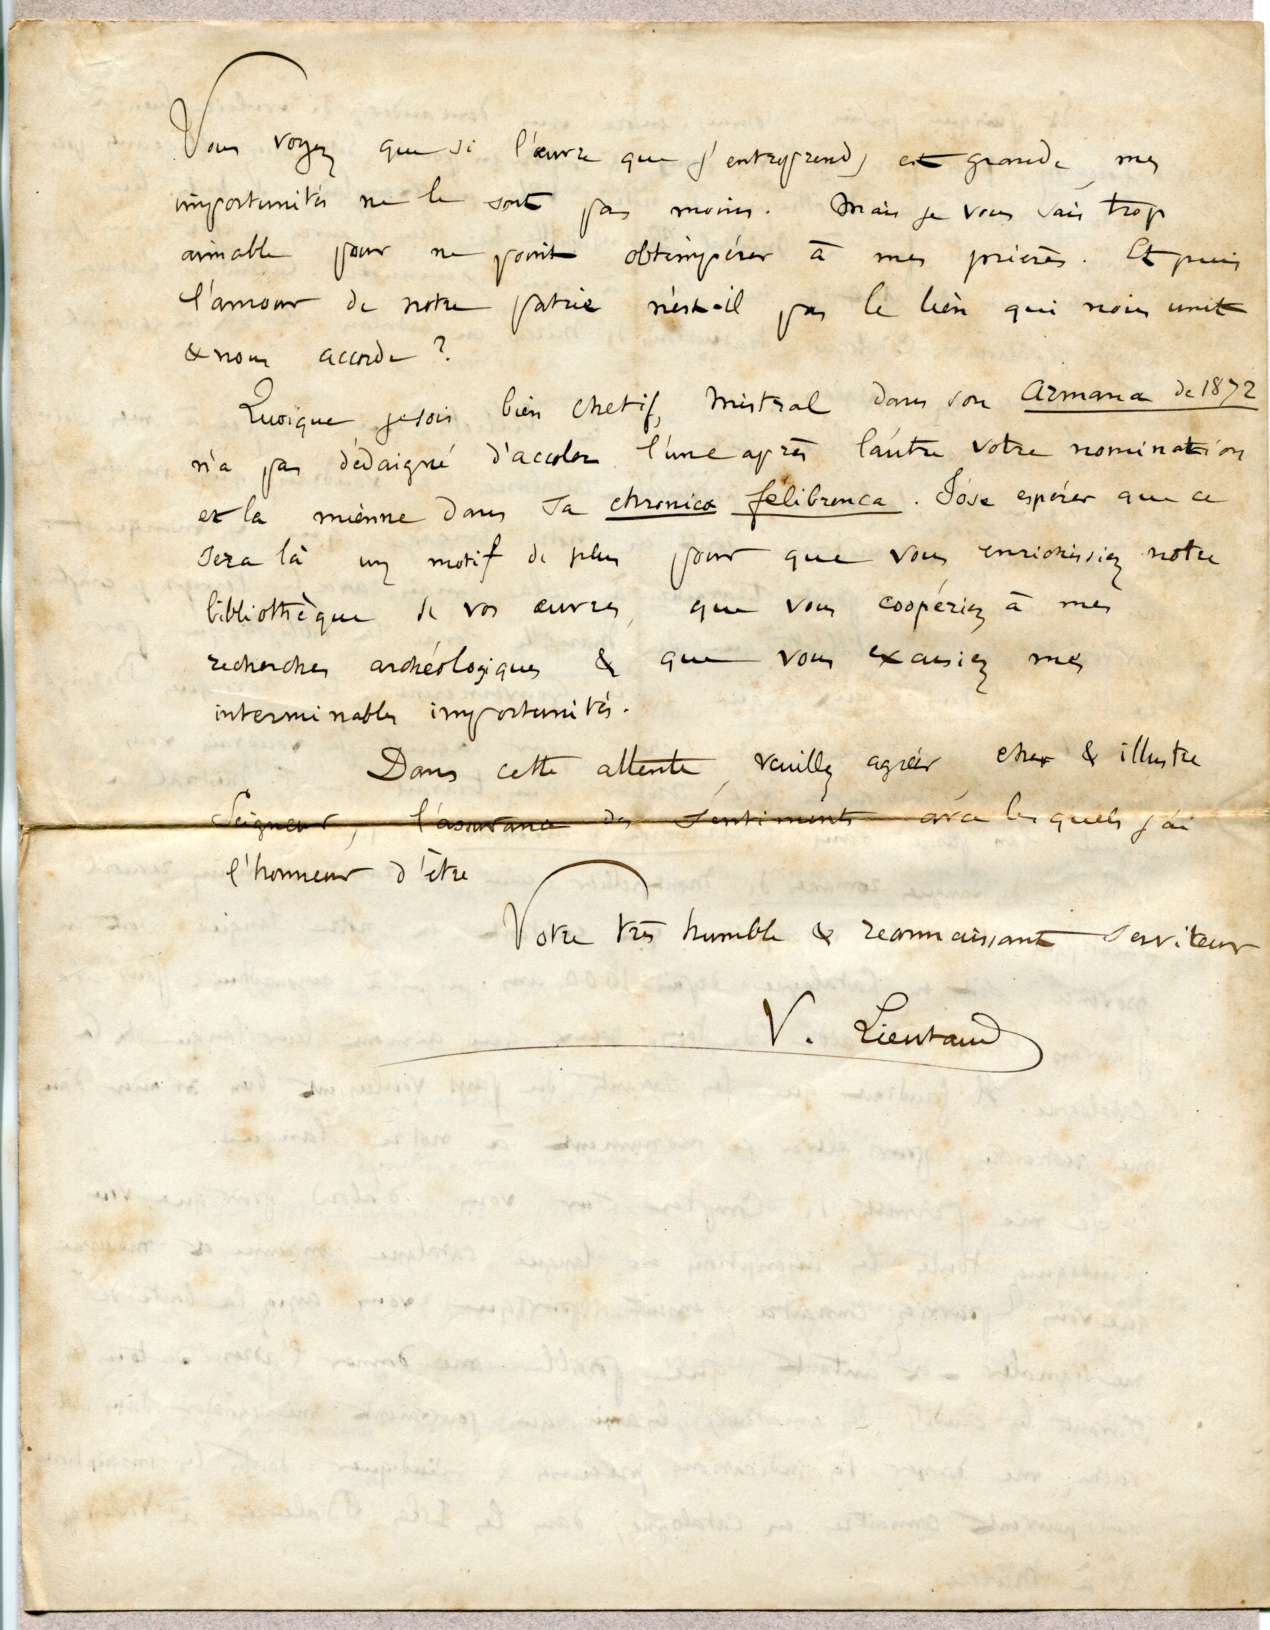 Vous voyez que si l'œuvre que j'entreprends est grande, mes
importunités ne le sont pas moins. Mais je vous sais trop
aimable pour ne point obtempérer à mes prières. Et puis
l'amour de notre patrie n'est-il pas le lien qui nous unit
& nous accorde ?
Quoique je sois bien chetif, Mistral dans son Armana de 1872
n'a pas dédaigné d'accoler l'une après l'autre votre nomination
et la mienne dans sa chronica felibrenca. J'ose espérer que ce
sera là un motif de plus pour que vous enrichissiez notre
bibliothèque de vos œuvres, que vous coopériez à mes
recherches archéologiques & que vous excusiez mes
interminables importunités.
Dans cette attente, veuillez agréer cher & illustre
Seigneur, l'assurance des sentiments avec lesquels j'ai
l'honneur d'être
Votre très humble & reconnaissant serviteur
V. Lieutaud